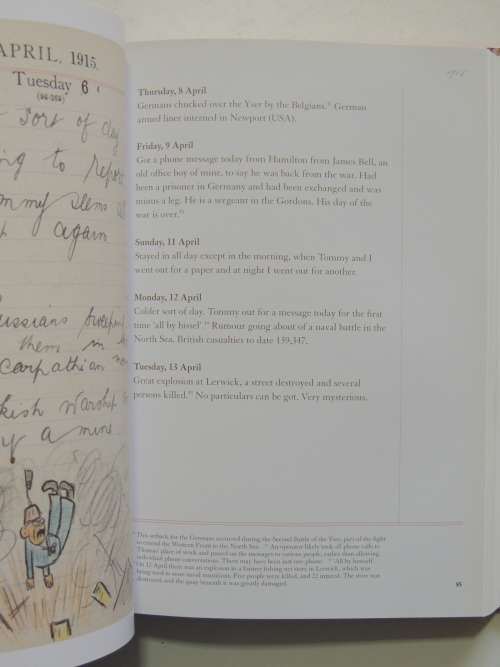 APRIL, 1915.
Tuesday 6
(96-269)
sort of day
ing to report
Tommy seems
again
Russians
them in
Carpathian
kish warship
by a mine.
Thursday, 8 April
Germans chucked over the Yser by the Belgians. German
armed liner interned in Newport (USA).
Friday, 9 April
Got a phone message today from Hamilton from James Bell, an
old office boy of mine, to say he was back from the war. Had
been a prisoner in Germany and had been exchanged and was
minus a leg. He is a sergeant in the Gordons. His day of the
war is over.
Sunday, 11 April
Stayed in all day except in the morning, when Tommy and I
went out for a paper and at night I went out for another.
Monday, 12 April
Colder sort of day. Tommy out for a message today for the first
time 'all by hissel'. Rumour going about of a naval battle in the
North Sea. British casualties to date 139,347.
Tuesday, 13 April
Great explosion at Lerwick, a street destroyed and several
persons killed. No particulars can be got. Very mysterious.
This setback for the Germans occurred during the Second Battle of the Yser, part of the fight
to extend the Western Front to the North Sea. An operator likely took all phone calls to
Thomas' place of work and passed on the messages to various people, rather than allowing
individual phone conversations. There may have been just one phone. 'All by himself'.
On 12 April there was an explosion at a former fishing net store in Lerwick, which was
being used to store naval munitions. Five people were killed, and 22 injured. The store was
destroyed, and the quay beneath it was greatly damaged.
85